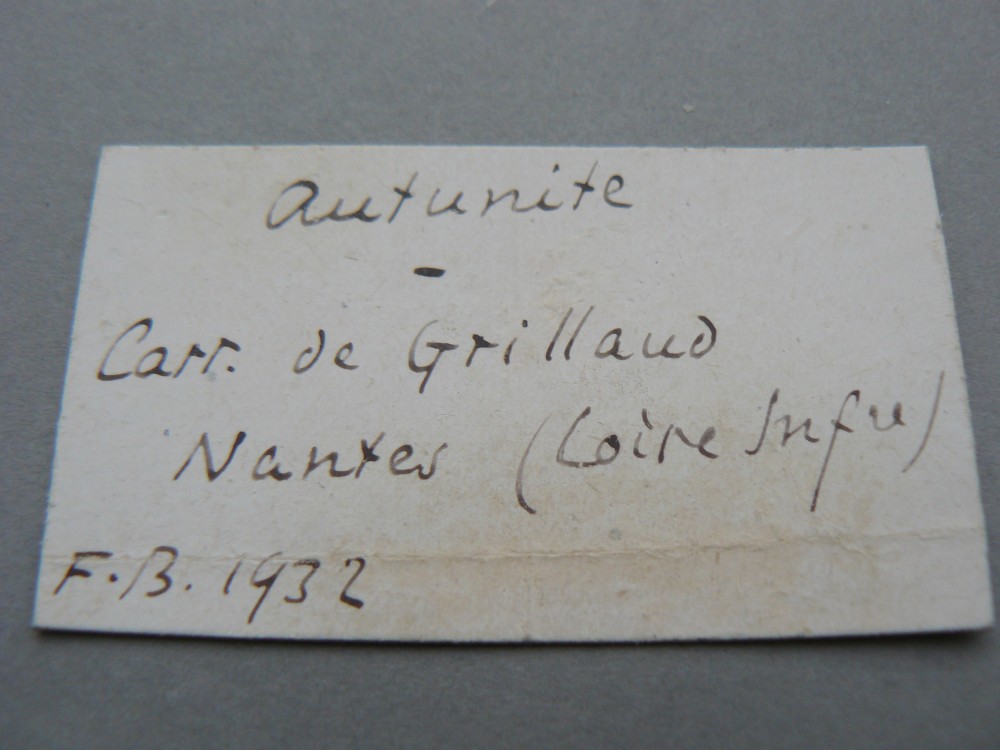 Autunite
-
Carr. de Grillaud
Nantes (Loire Infre)
F.B. 1932